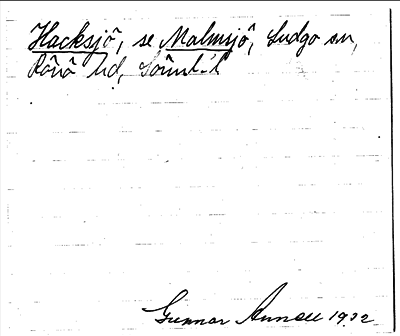 Hacksjö, se Malmsjö, Ludgo sn,
Rönö hd, Sörml.
Gunnar 1932